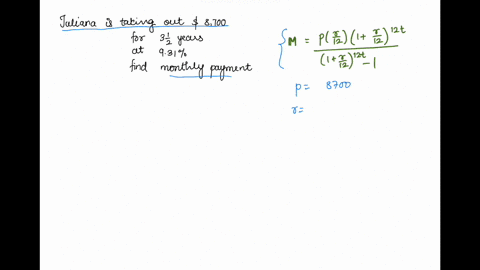 Juliana is taking out $ 8,700
for 3 1/2 years
at 9.31%
find monthly payment
M = P(r/12)(1+r/12)^12t / (1+r/12)^12t - 1
P = 8700
r=